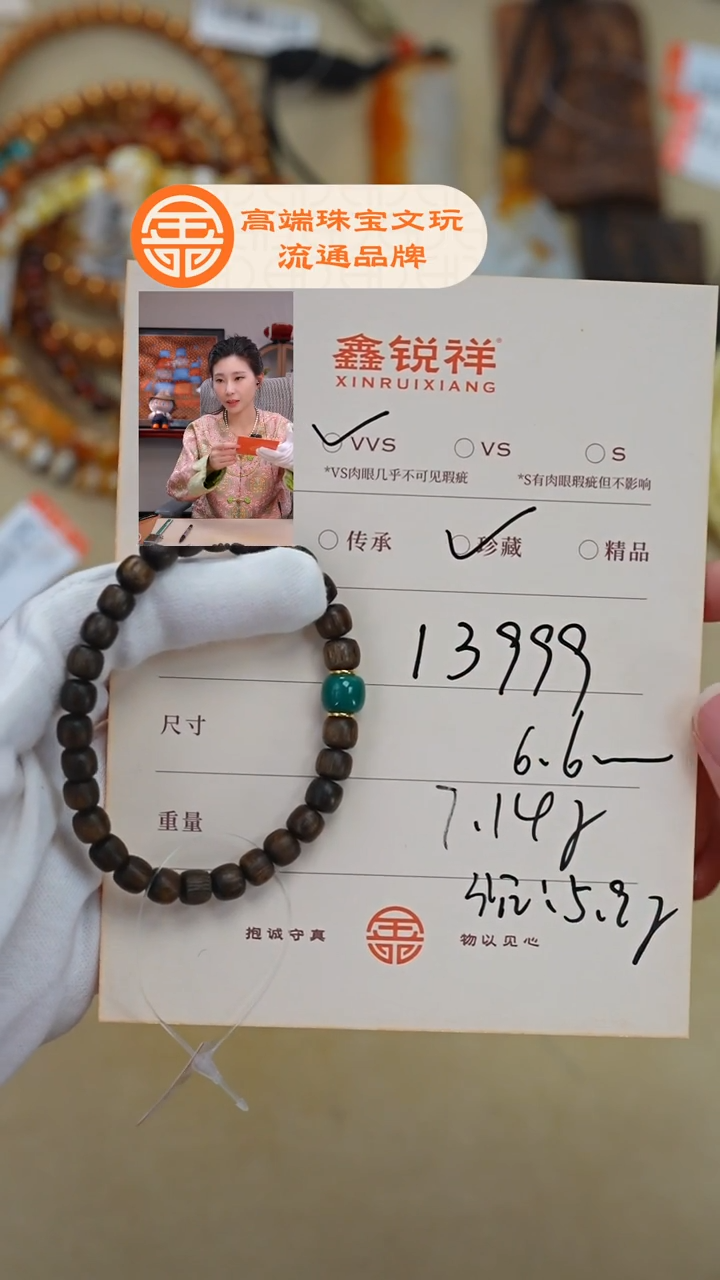 高端珠宝文玩
流通品牌
鑫锐祥
XINRUIXIANG
VVS VS S
*VS肉眼几乎不可见瑕疵 *S有肉眼瑕疵但不影响
传承 珍藏 精品
13999
尺寸 6.6
重量 7.14g
:5.9g
抱诚守真 物以见心